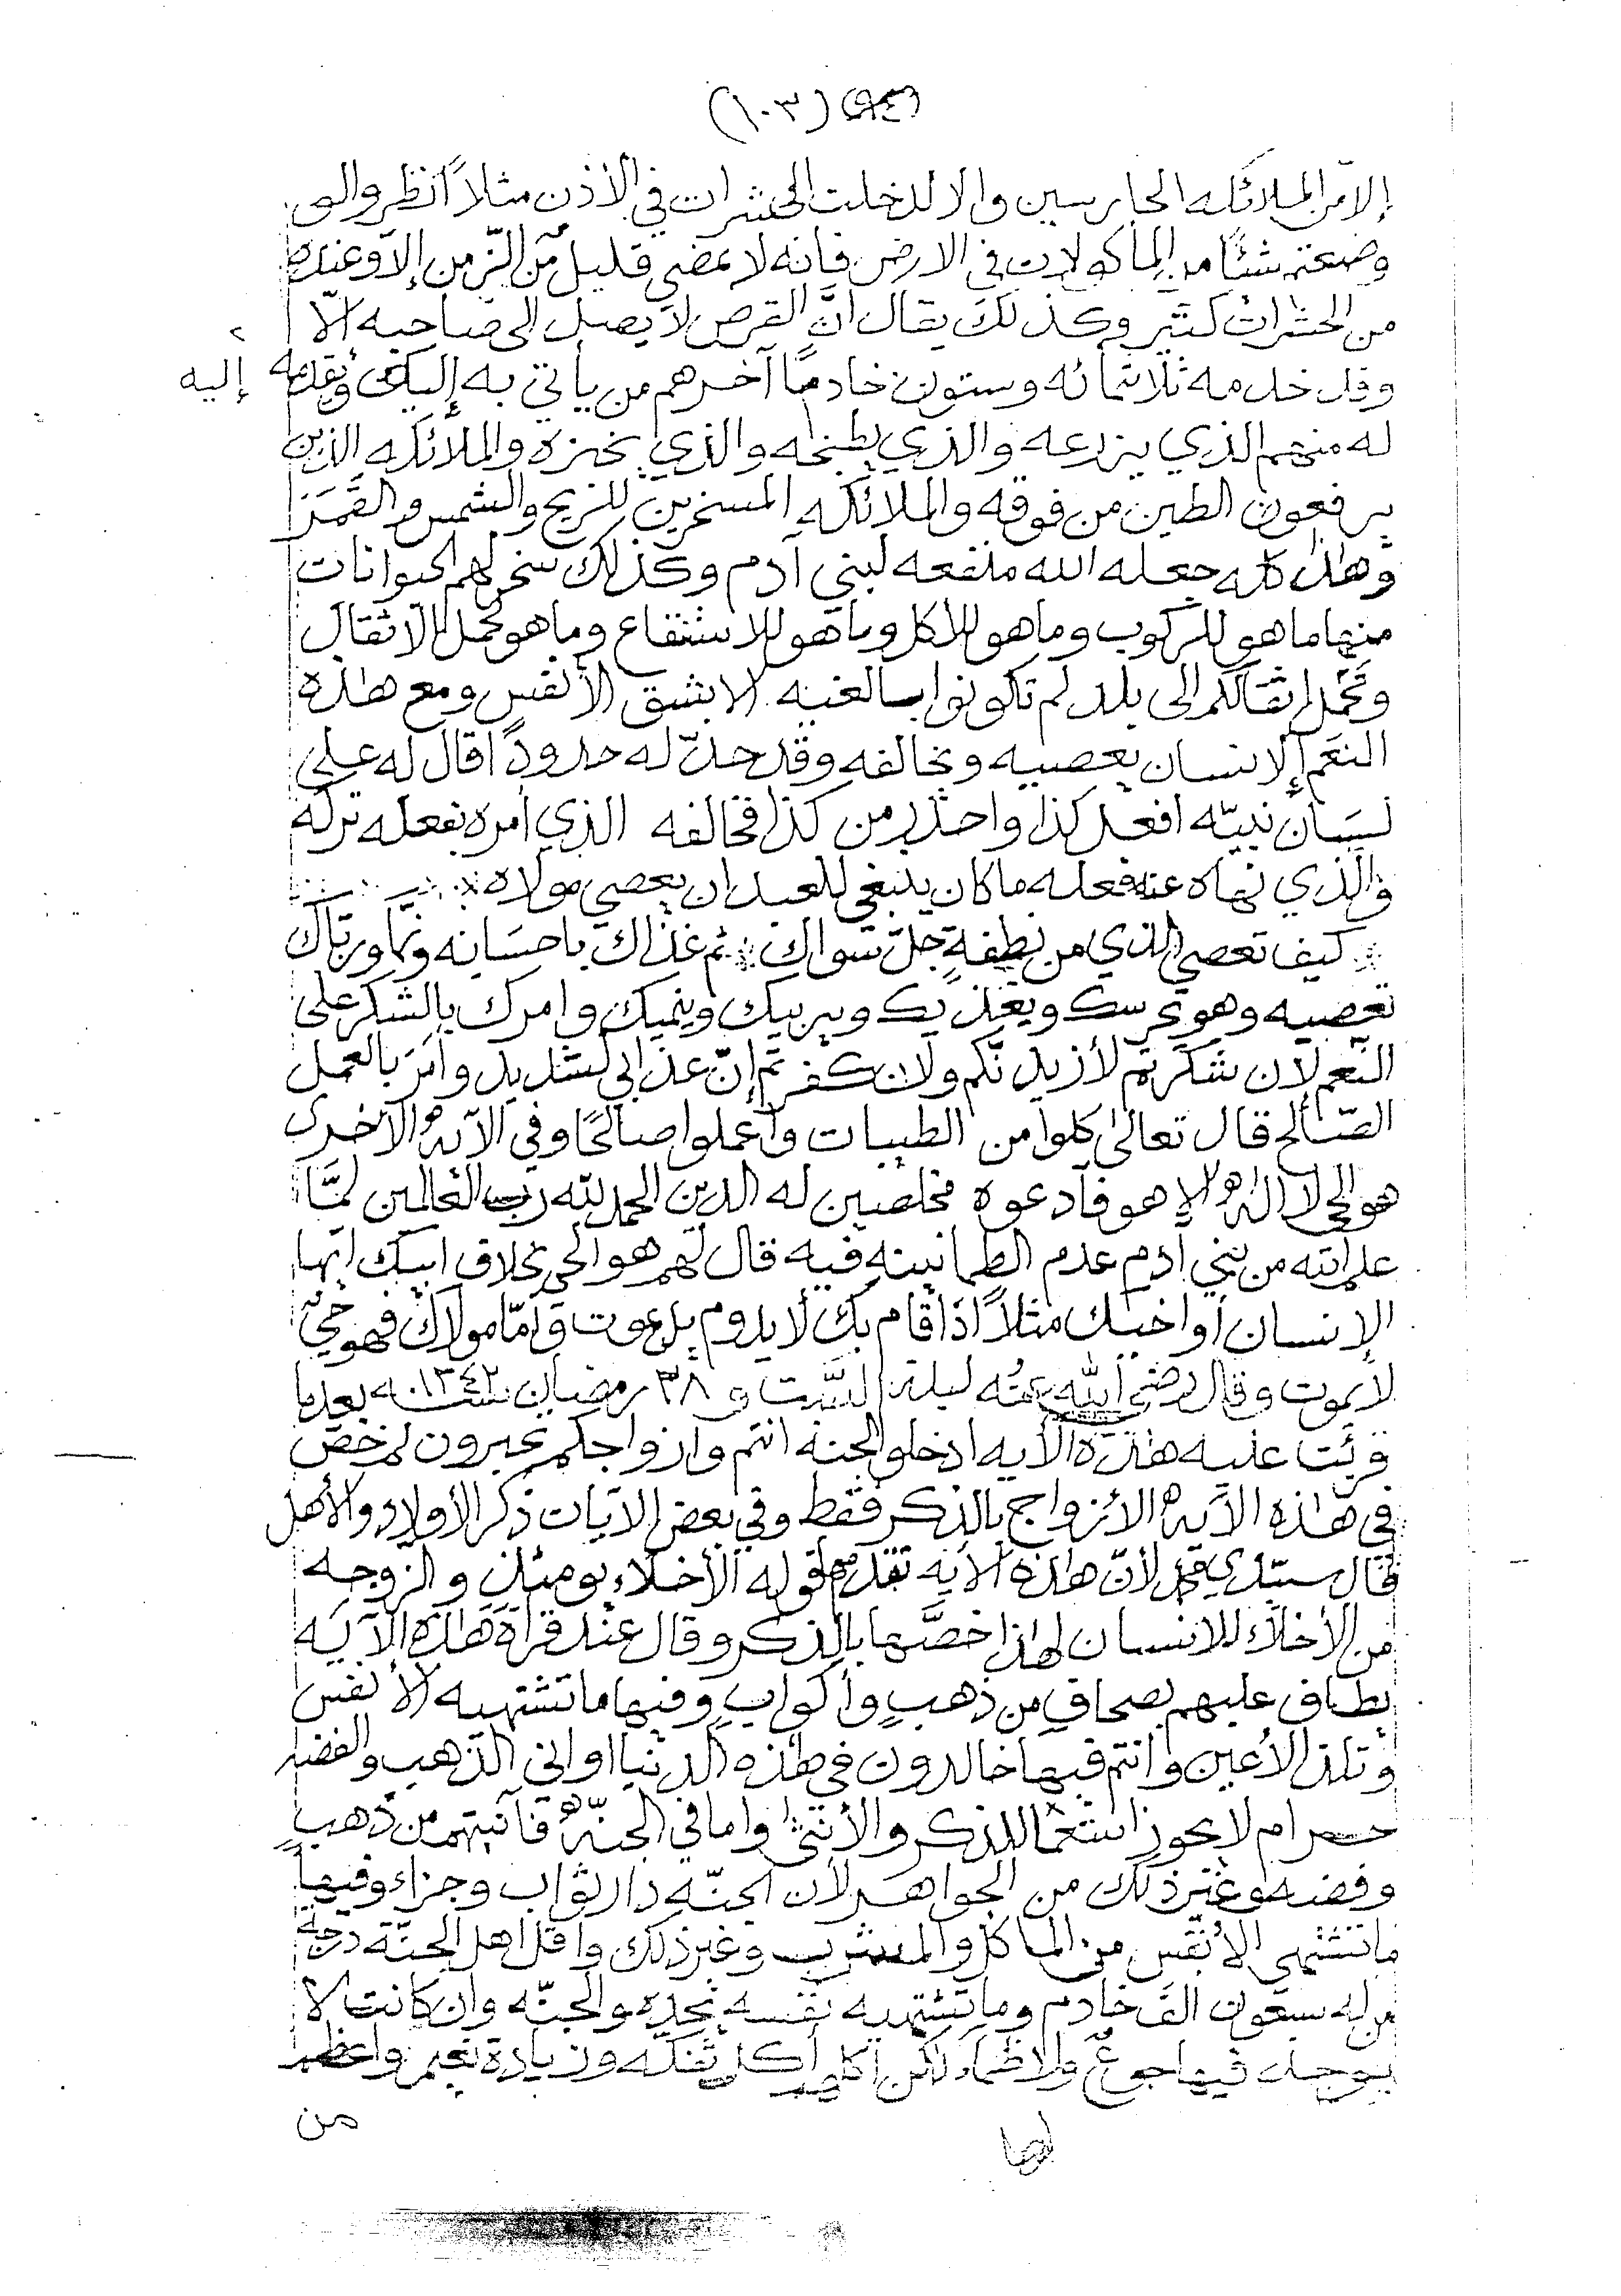 (١٠٣)
إلا من الملائكه الحارسين والا لدخلت الحشرات في الأذن مثلاً انظروا لو
وضعتم شئًا من المأكولات في الارض فانه لا يمضي قليل من الزمن إلا وعنده
من الحشرات كثير وكذلك يقال انَّ القرص لا يصل الى صاحبه الّا
وقد خدمه ثلاثمائه وستون خادمًا آخرهم من يأتي به إليك ويقدمه إليه
له منهم الذي يزرعه والذي يطبخه والذي يخبزه والملائكه الذين
يرفعون الطين من فوقه والملائكه المسخرين للريح والشمس والقَمَر
وهاذا كله جعله الله منفعه لبني آدم وكذلك سخر لهم الحيوانات
منها ما هو للركوب وما هو للأكل وما هو للانتفاع وما هو لحمل الأثقال
وتَحْمل اثقالكم الى بلد لم تكونوا بالغيه الا بشق الأنفس ومع هاذه
النعَم الإنسان يعصيه ويخالفه وقد حدّ له حدودًا قال له على
لسَان نبيّه افعل كذا واحذر من كذا فخالفه الذي أمره بفعله تركه
والّذي نهاه عنه فعله ما كان ينبغي للعبد ان يعصي مولاه
كيف تعصي الذي من نطفةٍ جلّ سواك ثم غذاك باحسَانه ونمّا وربّاك
تعصيه وهو يحرسك ويغذيك ويربيك وينميك وامرك بالشكر على
النّعم لإن شكرتم لأزيدنّكم ولإن كفرتم إنّ عذابي لشديد وأمَرَ بالعمل
الصّالح قال تعالى كلوا من الطيبات وأعملوا صالحًا وفي الآية الاخرى
هو الحي لا اله إلا هو فادعوه مخلصين له الدين الحمد لله رب العالمين لمَّا
علم الله من بني آدم عدم الطمانينه فيه قال لهم هو الحي بخلاف ابيك ايّها
الإنسان أو اخيك مثلاً اذا قام بك لا يدوم بل يموت وَامّا مولاك فهو حيّ
لا يموت وقال رضي الله عنُه ليلة السَّبت و ٢٨ رمضان سنة ١٣٤٢ه بعدما
قرئت عليه هاذه الأيه ادخلوا الجنة انتم وازواجكم تحبرون لم خصّ
في هاذه الآية الأزواج بالذكر فقط وفي بعض الآيات ذكر الأولاد والأهل
فقال سيّدي محمد لأنّ هاذه الأيه تقدم قوله الأخلاء يومئذٍ والزوجه
من الأخلّاء للانسان لهاذا خصَّها بالذكر وقال عند قراءة هاذه الآيَه
يطاف عليهم بصحافٍ من ذهبٍ وأكوابٍ وفيها ما تشتهيه الأنفس
وتلذ الأعين وانتم فيها خالدون في هاذه الدنيا اواني الذهب والفضه
حرام لا يجوز استعمالها للذكر والأنثى واما في الجنّة فآنيتهم من ذهبٍ
وفضه وغير ذلك من الجواهر لأن الجنّه دار ثواب وجزاء وفيها
ما تشتهي الأنفس من المأكل والمشرب وغير ذلك واقل اهل الجنّه درجة
من له سبعون الف خادم وما تشتهيه نفسه يجده والجنّه وإن كانت لا
يوجد فيها جوعٌ ولا ظماء لاكن أكلهم أكل تفكه وزيادة نعيم واعظم
من